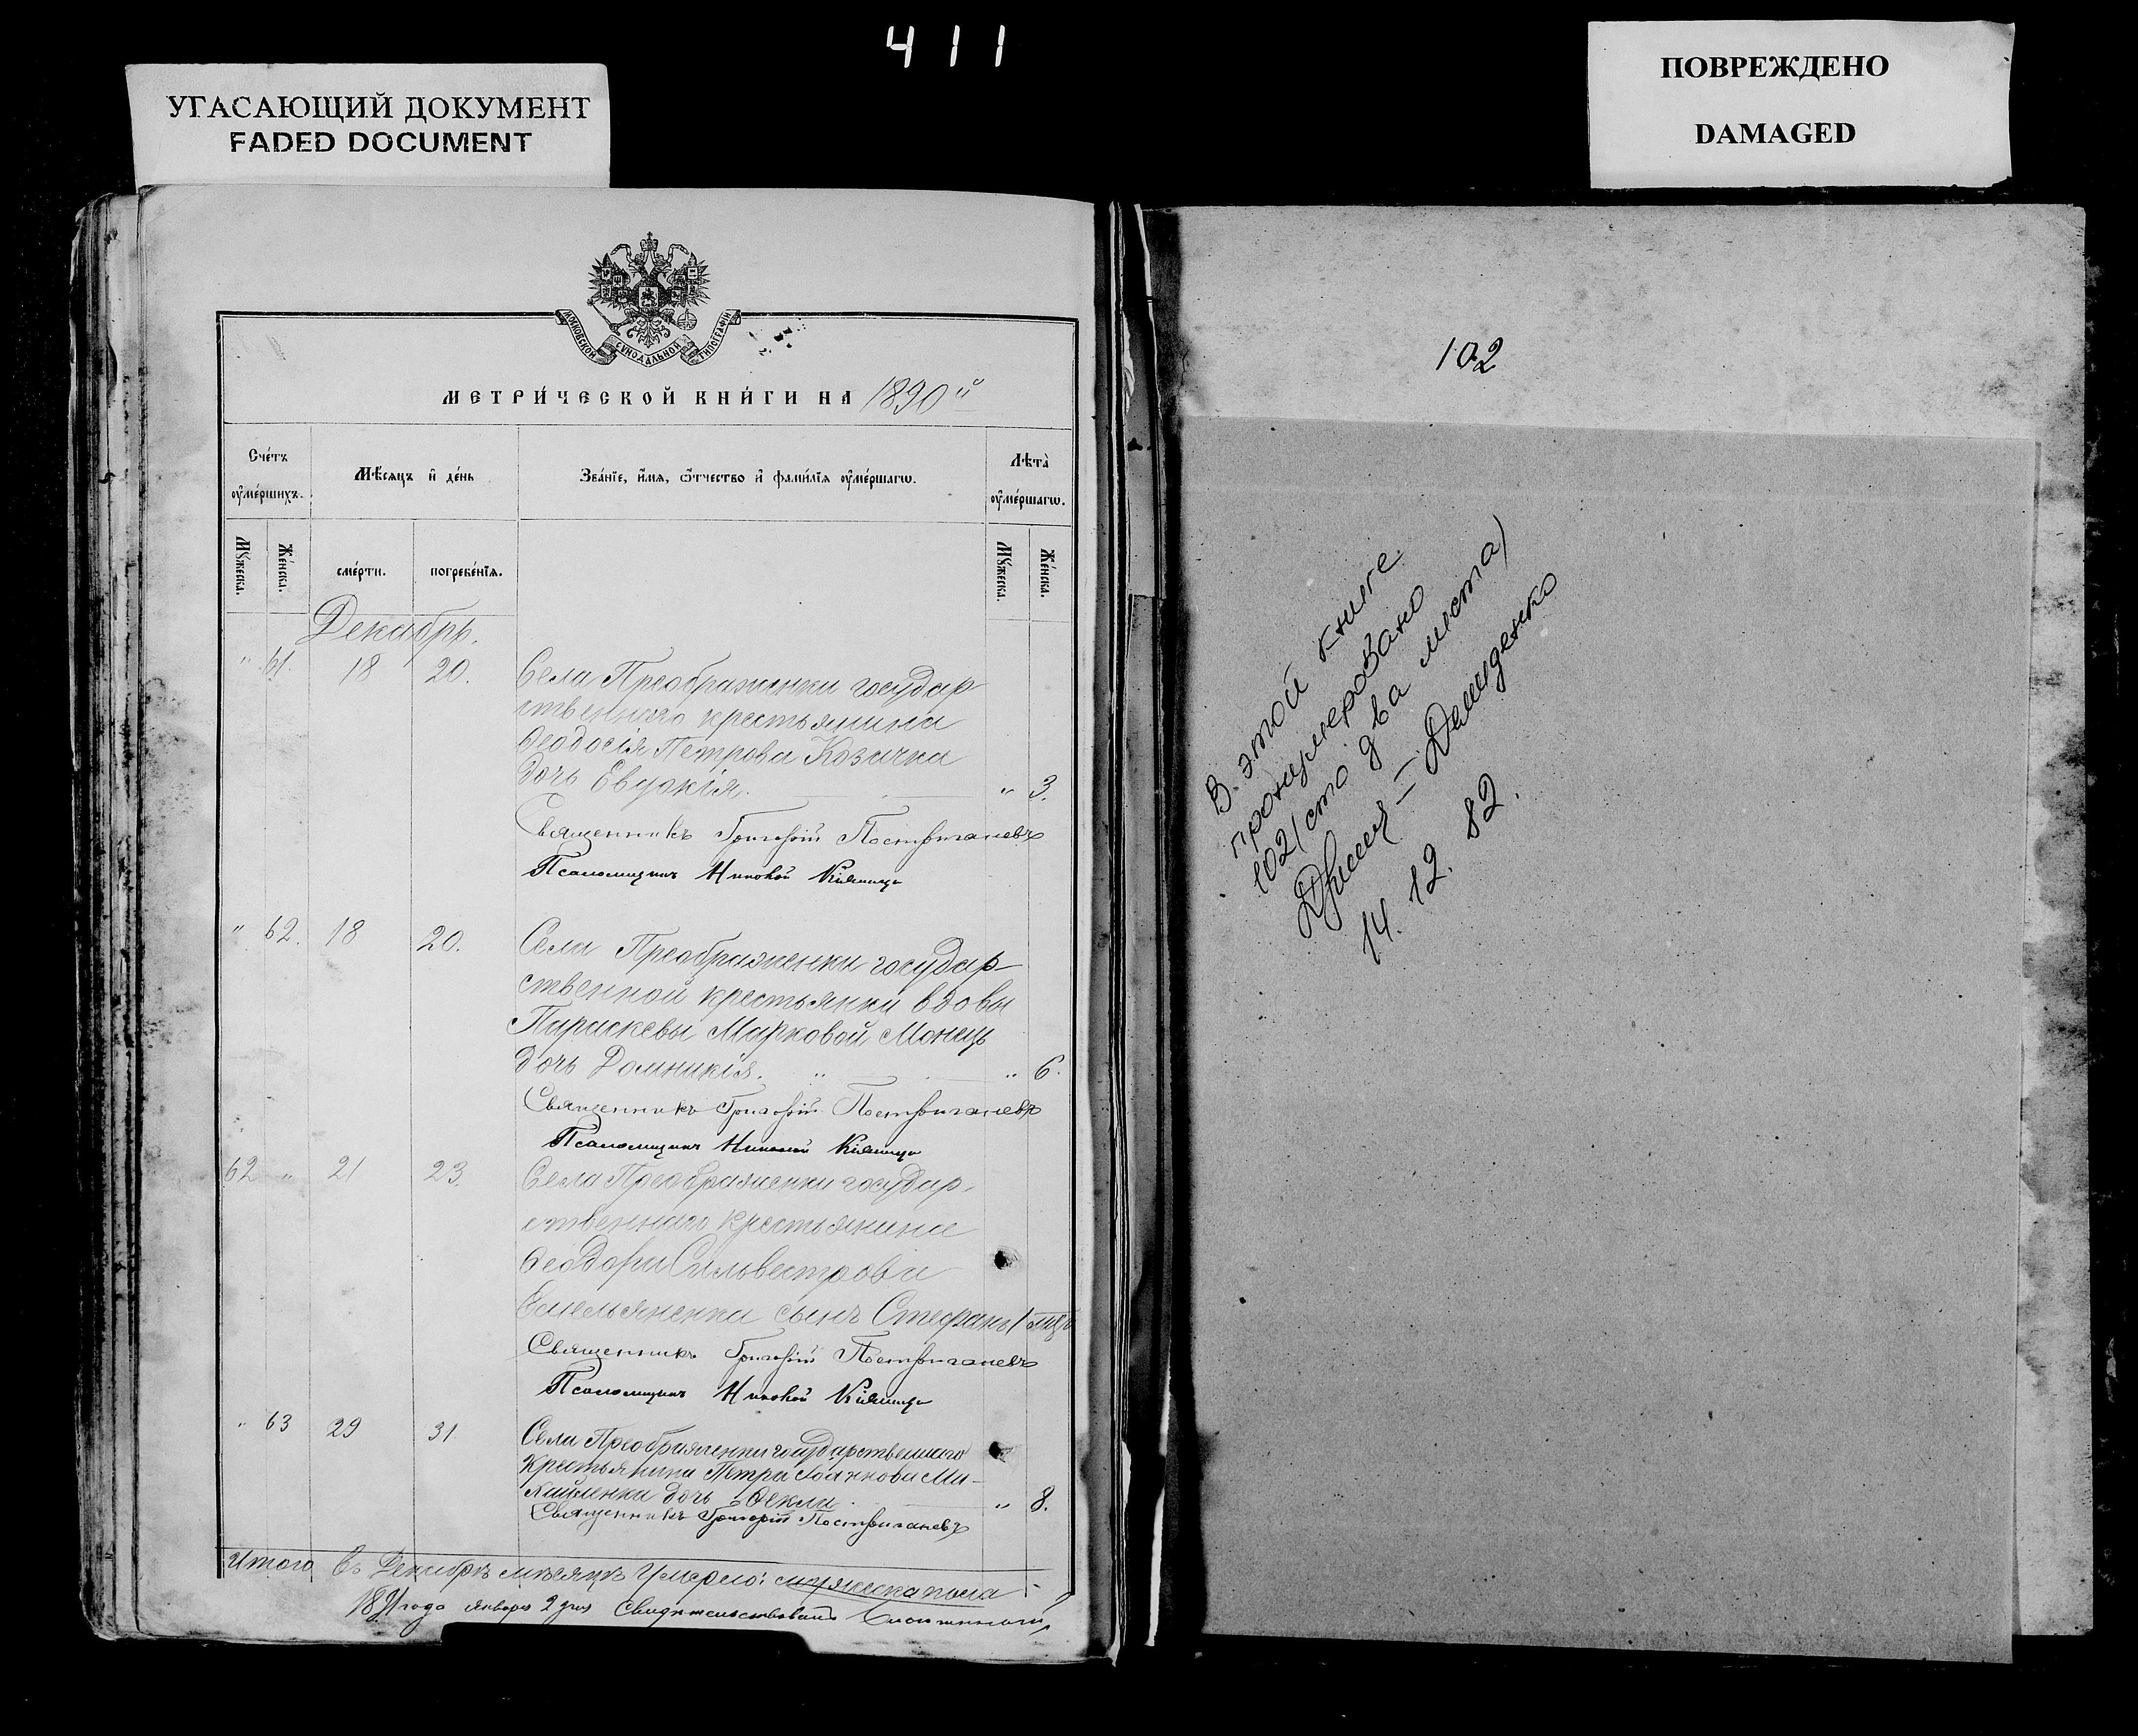 411
УГАСАЮЩИЙ ДОКУМЕНТ
FADED DOCUMENT
ПОВРЕЖДЕНО
DAMAGED
МОСКОВСКОЙ СУНОДАЛЬНОЙ ТИПОГРАФІИ
МЕТРИ́ЧЕСКОЙ КНИ́ГИ НА 1890й
Сче́тъ оу҆ме́ршихъ.
Мѣ́сяцъ и҆ де́нь
Зва́нїе, и҆́мя, ѻ҆́тчество и҆ фами́лїя оу҆ме́ршагѡ.
Лѣта̀ оу҆ме́ршагѡ.
Мꙋ́жеска.
Же́нска.
сме́рти.
погребе́нїя.
Мꙋ́жеска.
Же́нска.
Декабрь.
" 61. 18 20. Села Преображенки государ
ственнаго крестьянина
Ѳеодосія Петрова Козачка
дочь Евдокія. " 3.
Священникъ Григорій Постригачевъ
Псаломщикъ Николай Кіяница
" 62. 18 20. Села Преображенки государ-
ственной крестьянки вдовы
Параскевы Марковой Монець
дочь Домникія. " " 6.
Священникъ Григорій Постригачевъ
Псаломщикъ Николай Кіяница
62 " 21 23. Села Преображенки государ-
ственнаго крестьянина
Ѳеодора Сильвестрова
Емельяненка сынъ Стефанъ 1 мцъ
Священникъ Григорій Постригачевъ
Псаломщикъ Николай Кіяница
" 63 29 31 Села Преображенки государственнаго
крестьянина Петра Іоаннова Ми-
дочь Ѳекла " 8.
Священникъ Григорій Постригачевъ
Итого Въ Декабрѣ мѣсяцѣ Умерло: мужеска пола
1891 года Января 2 дня Свидѣтельствовалъ
102
В этой книге
пронумеровано
102 (сто два листа)
Демиденко
14. 12. 82.